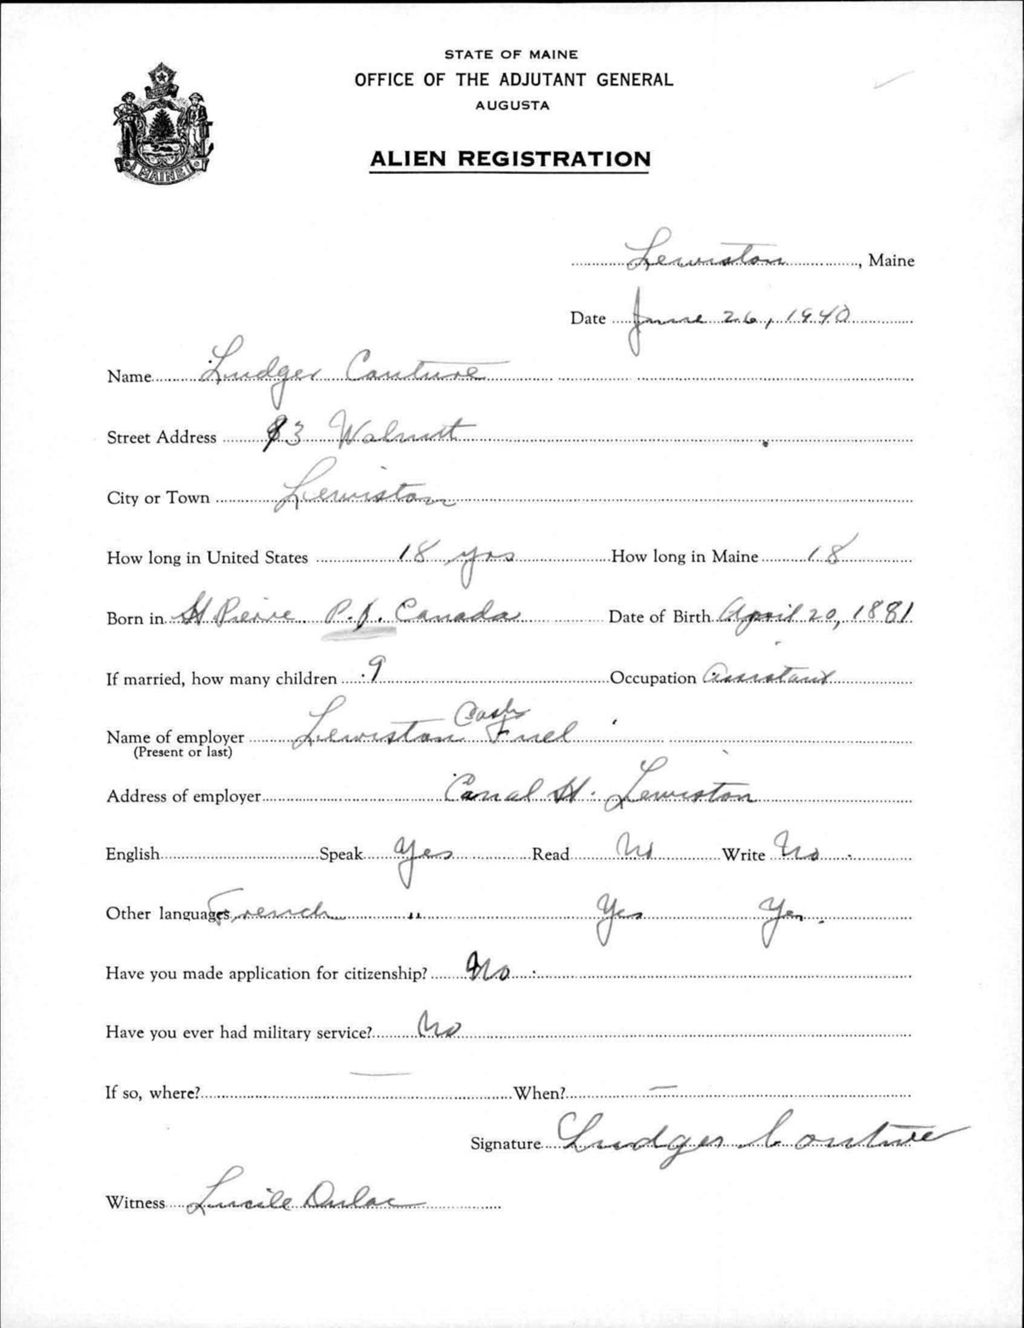 STATE OF MAINE
OFFICE OF THE ADJUTANT GENERAL
AUGUSTA
ALIEN REGISTRATION
MAINE
Lewiston, Maine
Date June 26, 1940
Name Ludger Couture
Street Address 83 Walnut
City or Town Lewiston
How long in United States 18 yrs How long in Maine 18
Born in St Pierre P.Q. Canada Date of Birth April 20, 1881
If married, how many children 9 Occupation Assistant
Name of employer Lewiston Fuel
(Present or last)
Address of employer Canal St. Lewiston
English Speak Yes Read No Write No
Other languages French " Yes Yes
Have you made application for citizenship? No
Have you ever had military service? No
If so, where? — When? —
Signature Ludger Couture
Witness Lucile Dulac